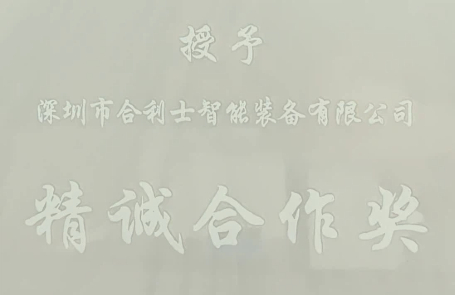 授予
深圳市合利士智能装备有限公司
精诚合作奖